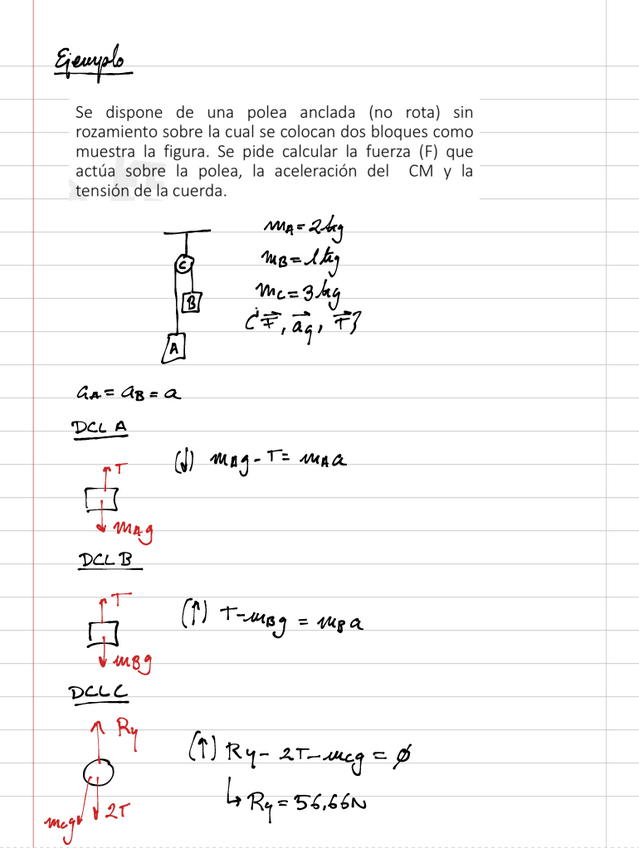 Ejemplo
Se dispone de una polea anclada (no rota) sin
rozamiento sobre la cual se colocan dos bloques como
muestra la figura. Se pide calcular la fuerza (F) que
actúa sobre la polea, la aceleración del CM y la
tensión de la cuerda.
mA = 2 kg
mB = 1 kg
mC = 3 kg
C
B
A
aA = aB = a
DCL A
(↓) mAg - T = mAa
T
mAg
DCL B
T
(↑) T - mBg = mBa
mBg
DCL C
Ry
(↑) Ry - 2T - mcg = ∅
↳ Ry = 56,66N
mcg 2T